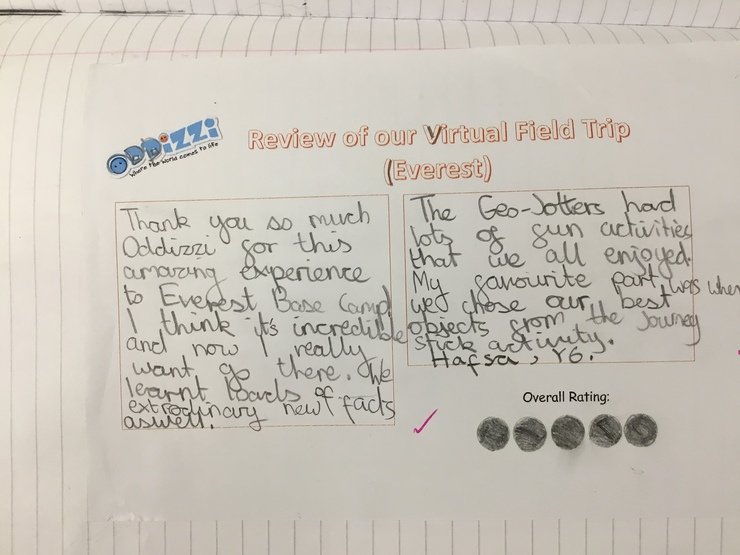 ODDIZZI
where the world comes to life
Review of our Virtual Field Trip
(Everest)
Thank you so much
Oddizzi for this
amazing experience
to Everest Base Camp
I think it's incredible
and now I really
want go there. We
learnt loads of
extrodinary new facts
aswell.
The Geo-Jotters had
lots of fun activities
that we all enjoyed.
My favourite part was when
we chose our best
objects from the Journey
stick activity.
Hafsa, Y6.
Overall Rating: